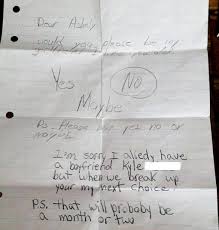 Dear
would you please be my
Yes No
Maybe
Ps. Please yes no or
I'm sorry I allredy have
a boyfriend Kyle
but when we break up
your my next choice
P.S. that will probaby be
a month or two